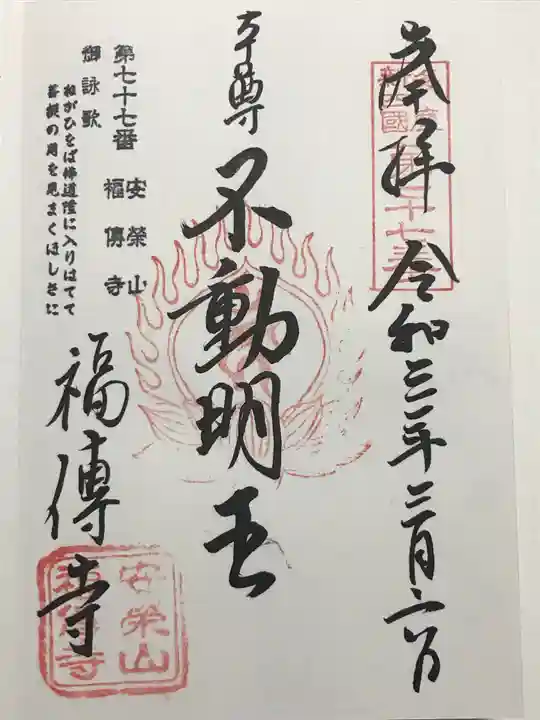 奉拝 令和三年三月六日
本尊 不動明王
第七十七番 安榮山
福傳寺
御詠歌
ねがひをば佛道陸に入りはてて
菩提の月を見まくほしさに
福傳寺
安栄山
福傳寺